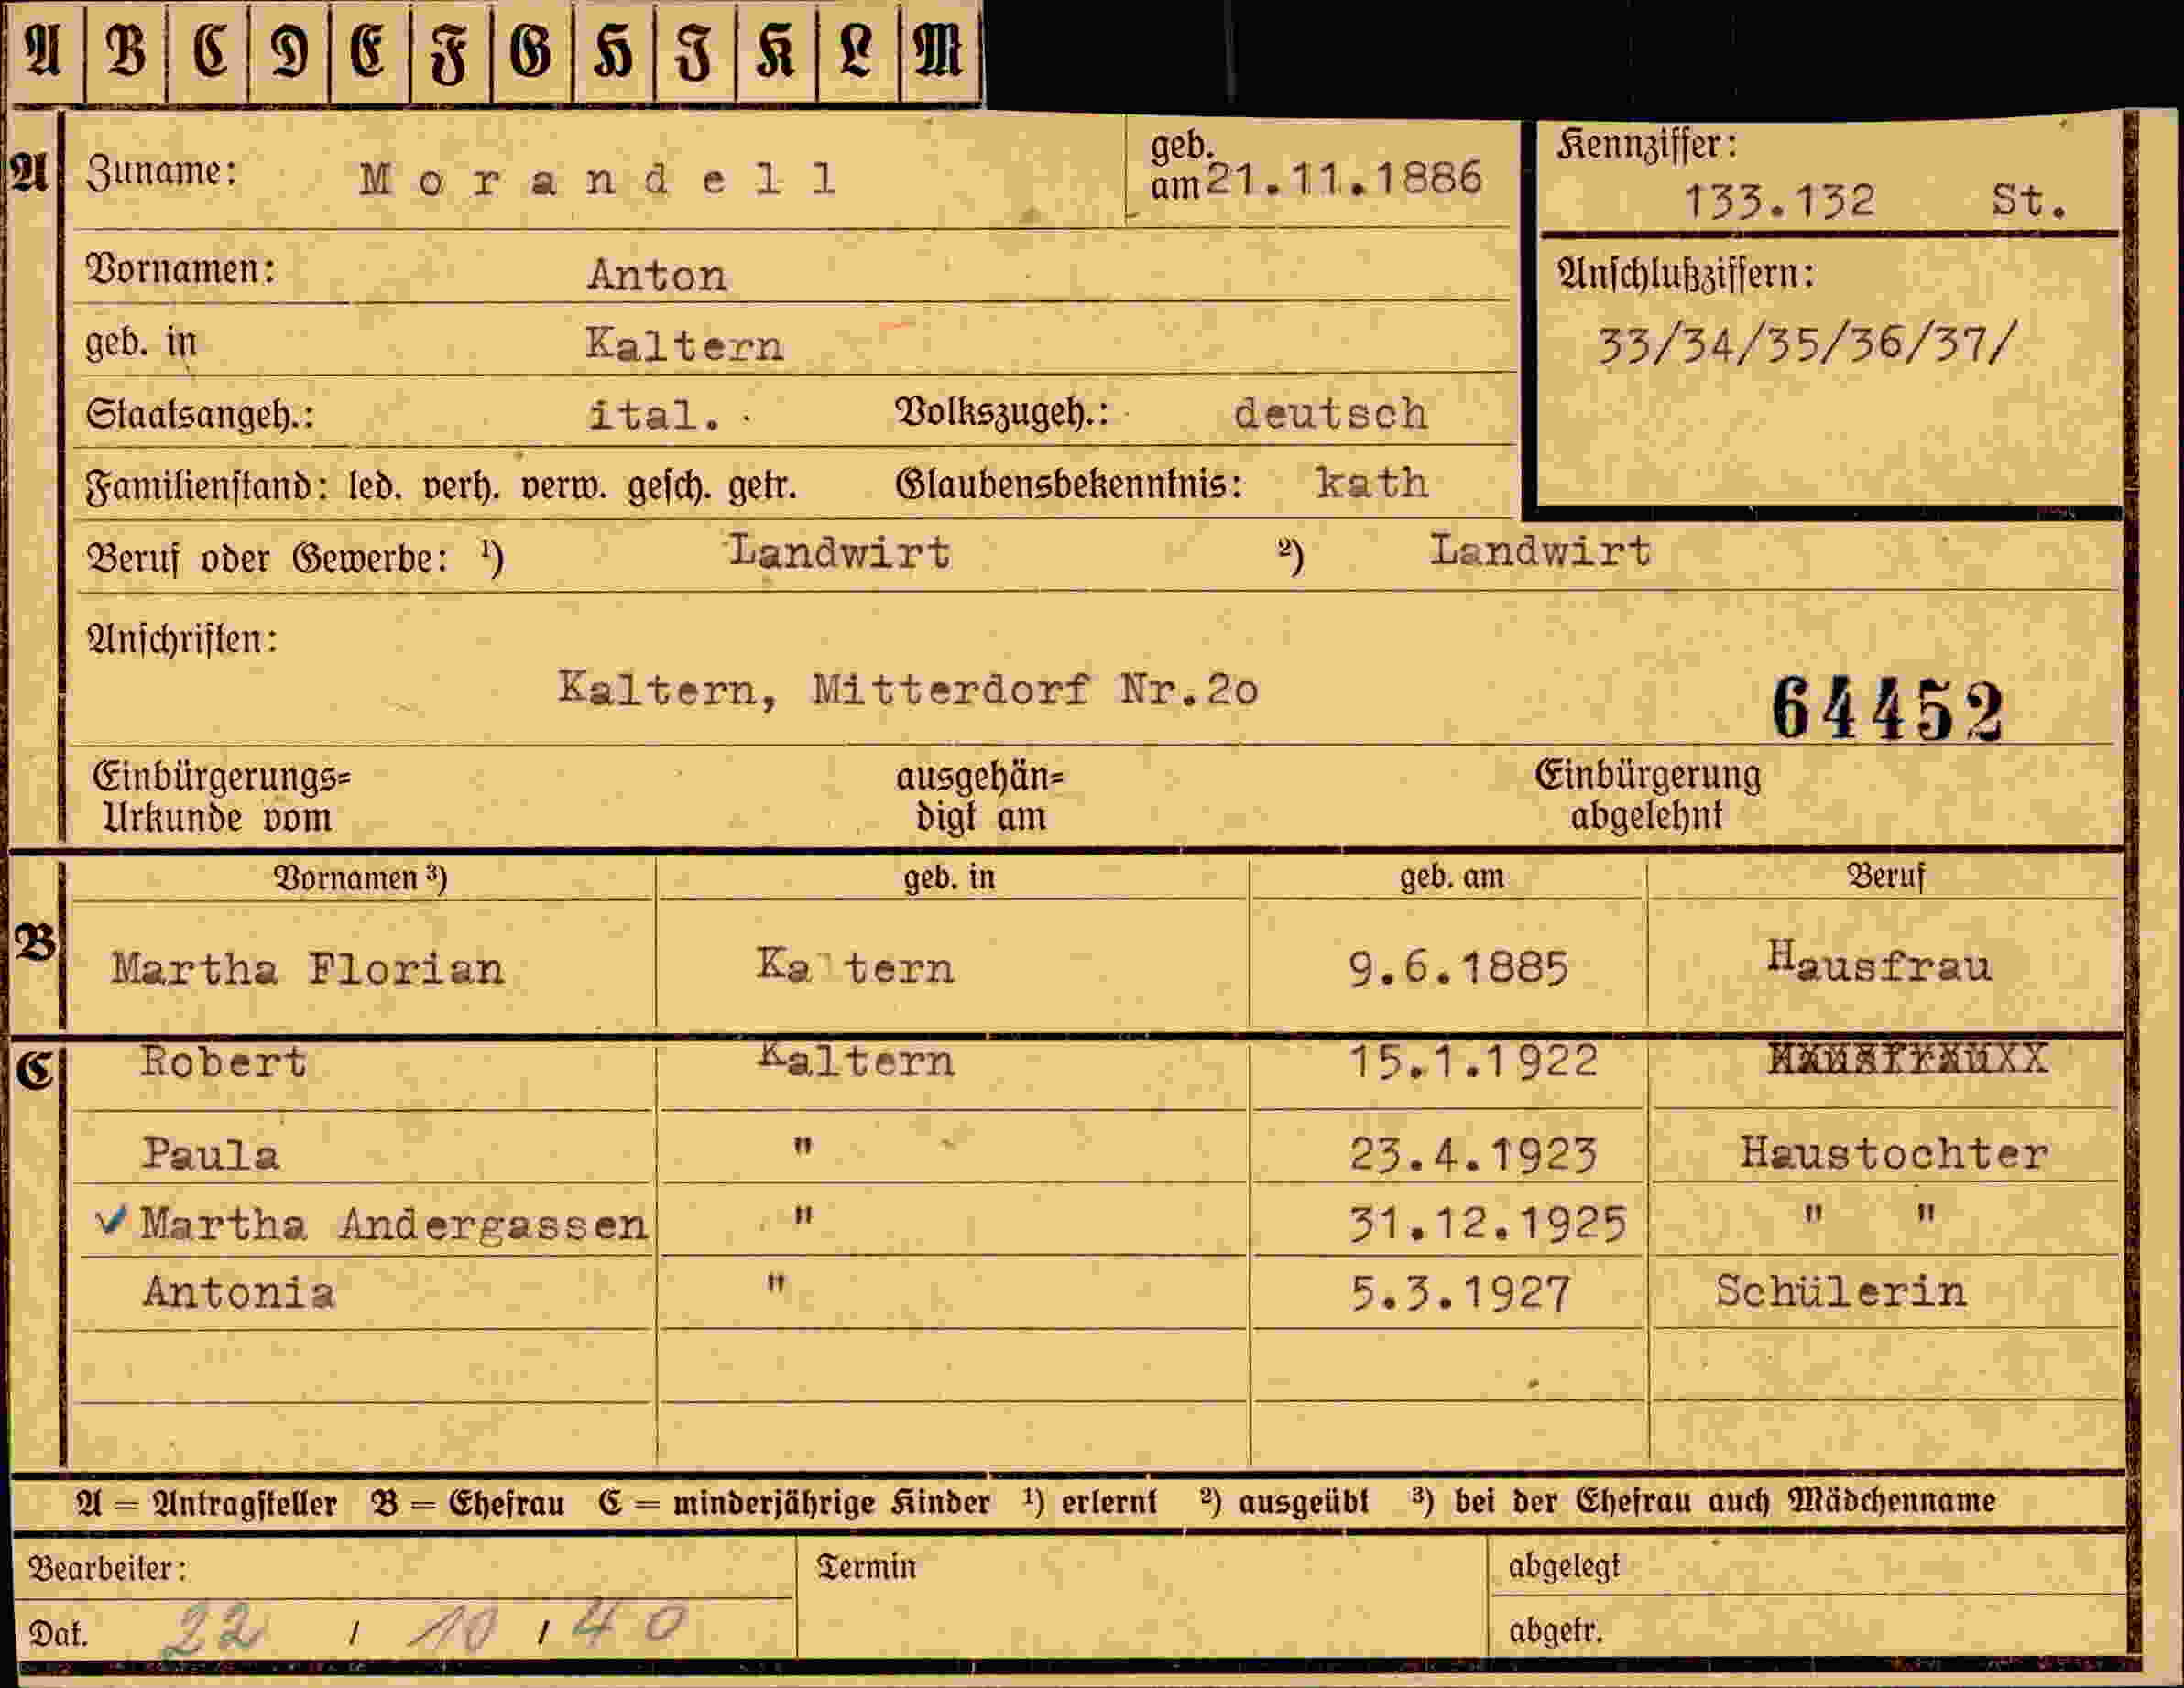 A B C D E F G H I K L M
A Zuname: Morandell geb. am 21.11.1886 Kennziffer:
133.132 St.
Vornamen: Anton Anschlußziffern:
geb. in Kaltern 33/34/35/36/37/
Staatsangeh.: ital. Volkszugeh.: deutsch
Familienstand: led. verh. verw. gesch. getr. Glaubensbekenntnis: kath
Beruf oder Gewerbe: ¹) Landwirt ²) Landwirt
Anschriften:
Kaltern, Mitterdorf Nr.2o 64452
Einbürgerungs= ausgehän= Einbürgerung
Urkunde vom digt am abgelehnt
Vornamen ³) geb. in geb. am Beruf
B Martha Florian Ka tern 9.6.1885 Hausfrau
C Robert Kaltern 15.1.1922
Paula " 23.4.1923 Haustochter
✓ Martha Andergassen " 31.12.1925 " "
Antonia " 5.3.1927 Schülerin
A = Antragsteller B = Ehefrau C = minderjährige Kinder ¹) erlernt ²) ausgeübt ³) bei der Ehefrau auch Mädchenname
Bearbeiter: Termin abgelegt
Dat. 22 / 10 / 40 abgetr.